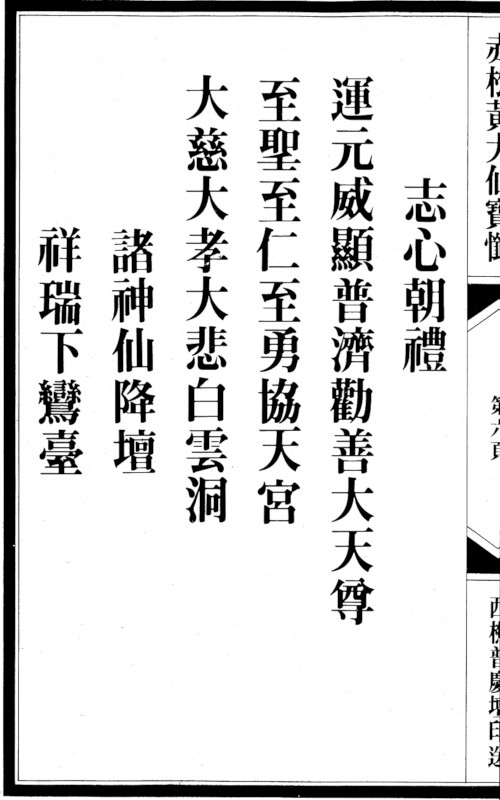 赤松黃大仙寶懺
第六頁
西樵普慶壇印送
志心朝禮
運元威顯普濟勸善大天尊
至聖至仁至勇協天宮
大慈大孝大悲白雲洞
諸神仙降壇
祥瑞下鸞臺